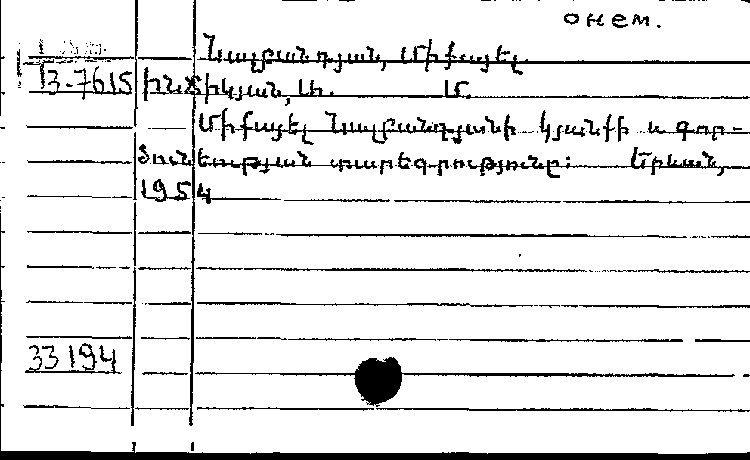 онем.
Նալբանդյան, Միքայել
13-7615 Ինճիկյան, Ա. Մ.
Միքայել Նալբանդյանի կյանքի և գոր-
ծունեության տարեգրությունը: Երևան,
1954
33194